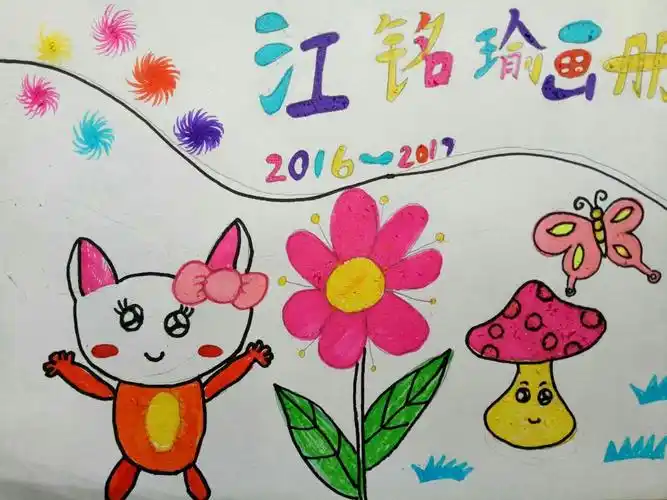 江铭瑜画册
2016~2017